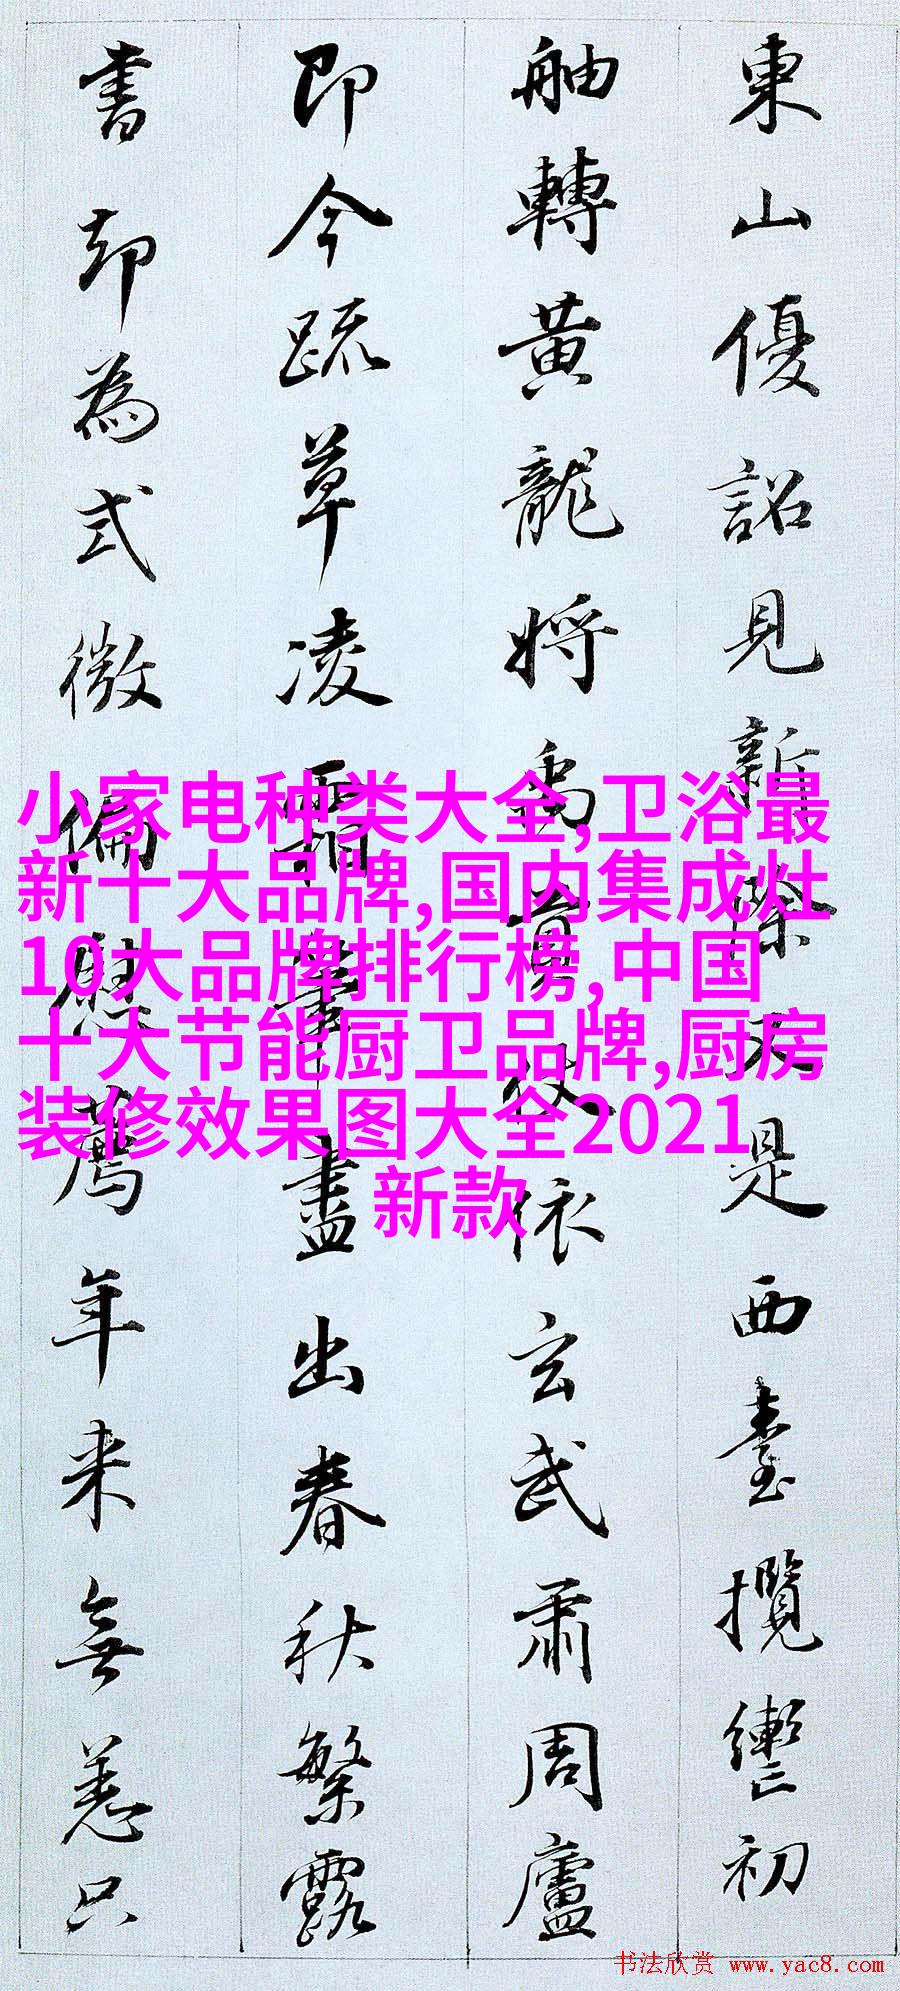 東山優詔見新除又是西臺攬轡初
舳轉黄龍將禹貢仗依玄武肅周廬
即今疏草凌霜筆盡出春秋繁露
書却為式微偏慰薦年来無恙只
小家电种类大全,卫浴最
新十大品牌,国内集成灶
10大品牌排行榜,中国
十大节能厨卫品牌,厨房
装修效果图大全2021
新款
书法欣赏 www.yac8.com